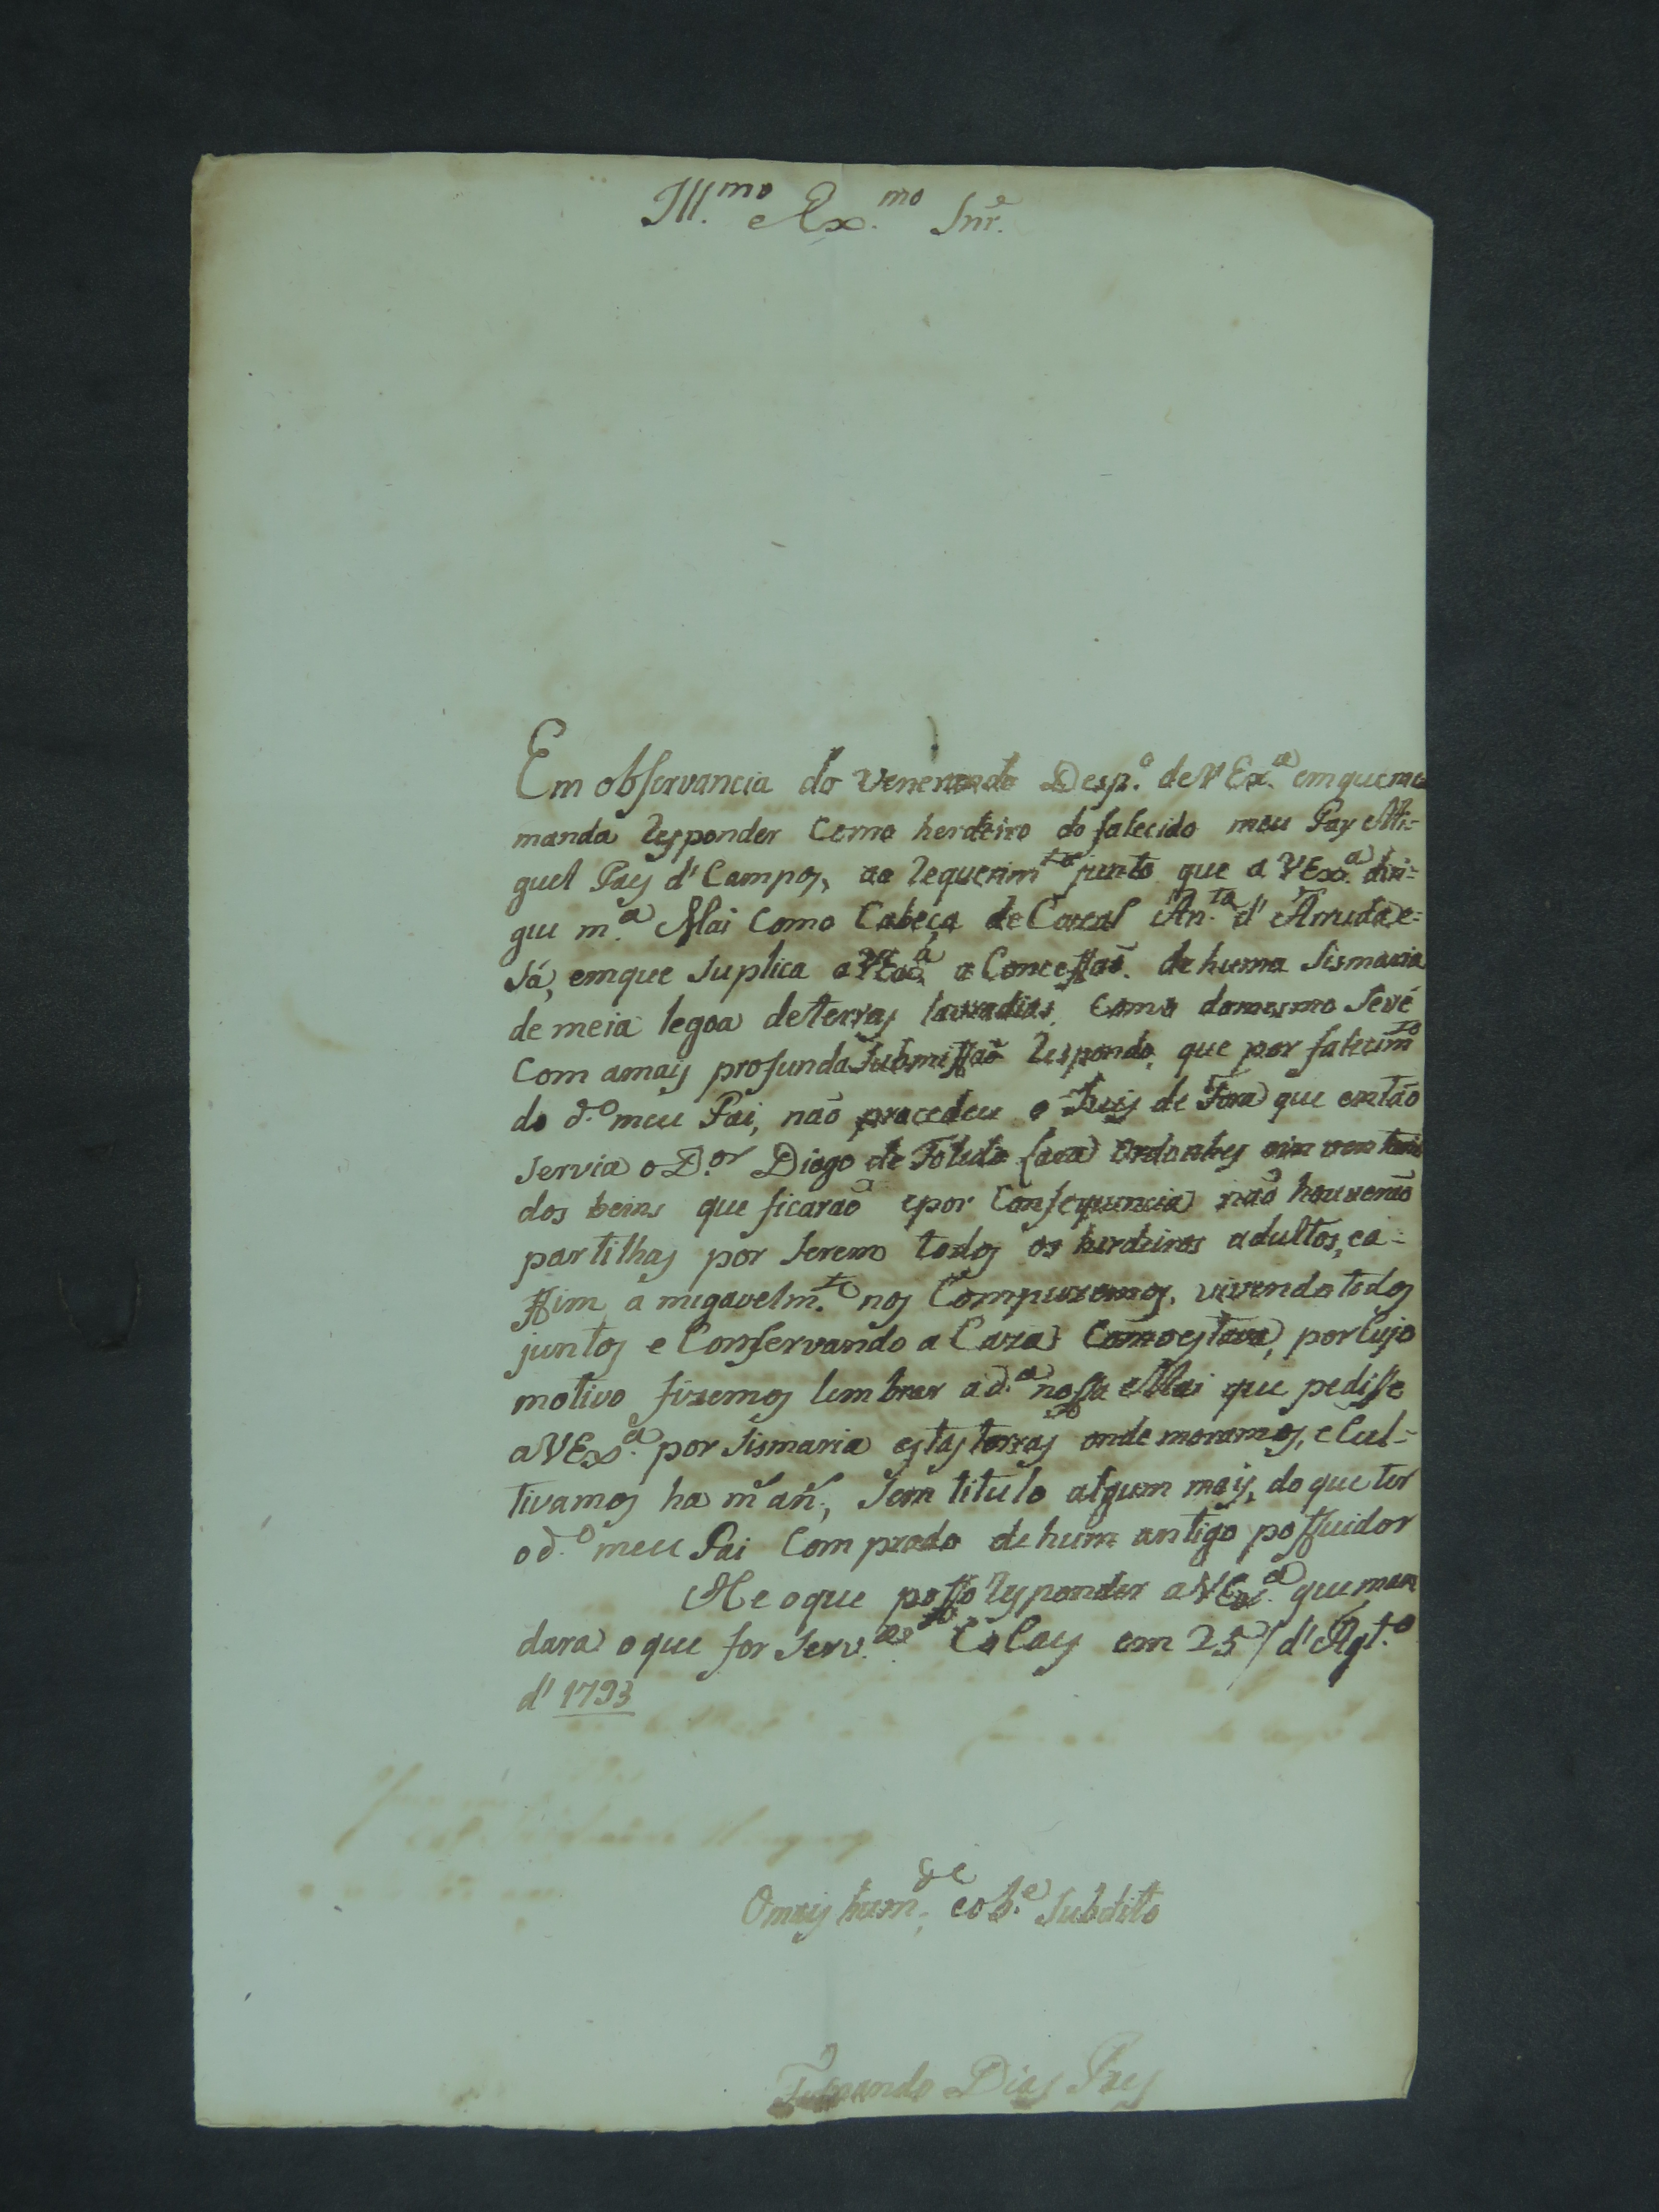 Ill.mo e Ex.mo Snr.e
Em observancia do Venerando Desp.o de V Ex.a em que me
manda responder Como herdeiro do falecido meu Pay Mi=
guel Pays d' Campos, ao requerim.to junto que a V Ex.a diri=
giu m.a Mai Como Cabeça de Cazal An.ta d' Arruda e=
Sá, em que Suplica a V Ex.a a Concessaõ de huma Sismaria
de meia legoa de terras lavradias, Como do mesmo Se vé
Com a mays profunda Submissaõ respondo, que por falecim.to
do d.o meu Pai, naõ procedeu o Juis de Fora que entaõ
Servia o D.or Diogo de Toledo Lara Ordonhes
dos beins que ficaraõ e por Consequencia naõ houveraõ
partilhas por Serem todos os herdeiros adultos, e a=
ssim amigavelm.te nos Compuzemos, vivendo todos
juntos e Conservando a Caza Como estava, por Cujo
motivo fizemos lembrar a d.a nossa Mai que pedisse
a V Ex.a por Sismaria estas terras onde moramos, e Cul=
tivamos ha m.s an.s, Sem titulo algum mays, do que ter
o d.o meu Pai Comprado de hum antigo possuidor
He o que posso responder a V Ex.a que man
dara o que for Serv.o em 25 / d' Agt.o
d' 1793
O mays hum.de e ob.e Subdito
Fernando Dias Paes